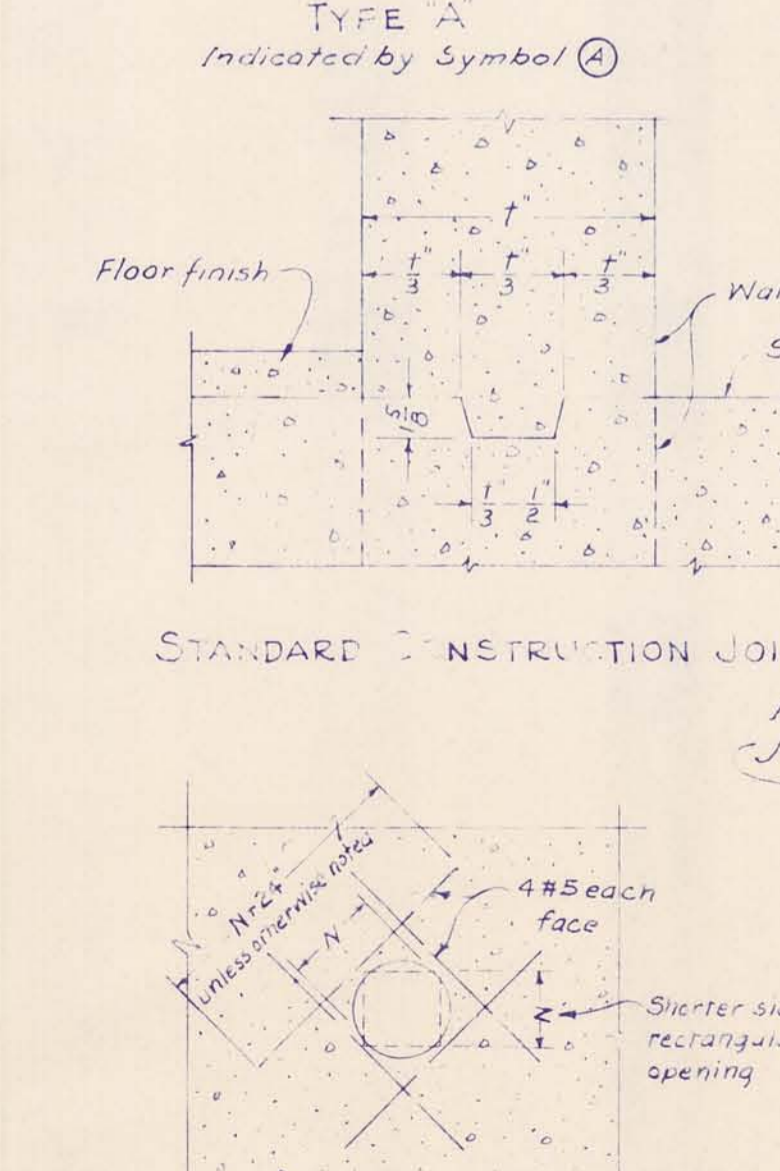 TYPE "A"
Indicated by Symbol (A)
t"
t"
3
t"
3
t"
3
Floor finish
5
18
t"
3
1"
2
STANDARD CONSTRUCTION
unless otherwise noted
N
4 #5 each
face
N
Shorter
opening